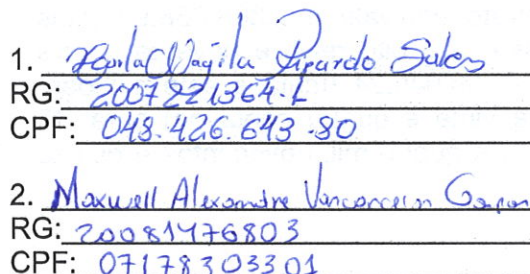 1. Picardo Sales
RG: 2007221364-1
CPF: 048.426.643-80
2. Maxwell Alexandre Vasconcelos
RG: 20081476803
CPF: 07178303301